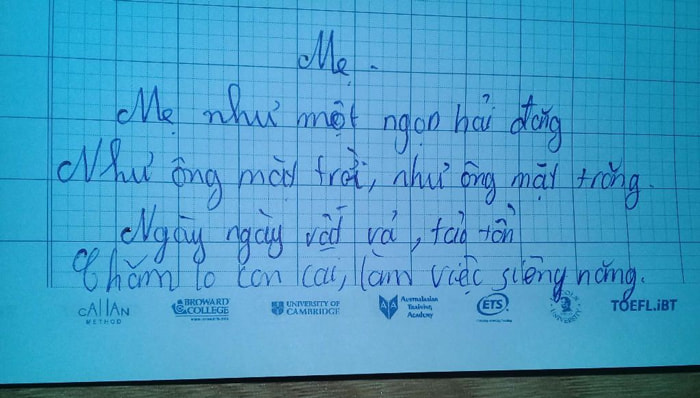 Mẹ.
Mẹ như một ngọn hải đăng
Như ông mặt trời, như ông mặt trăng.
Ngày ngày vất vả, tảo tần
Chăm lo con cái, làm việc siêng năng.
CALLAN METHOD
BROWARD COLLEGE
UNIVERSITY OF CAMBRIDGE
Australasian Training Academy
ETS
TOEFL.iBT